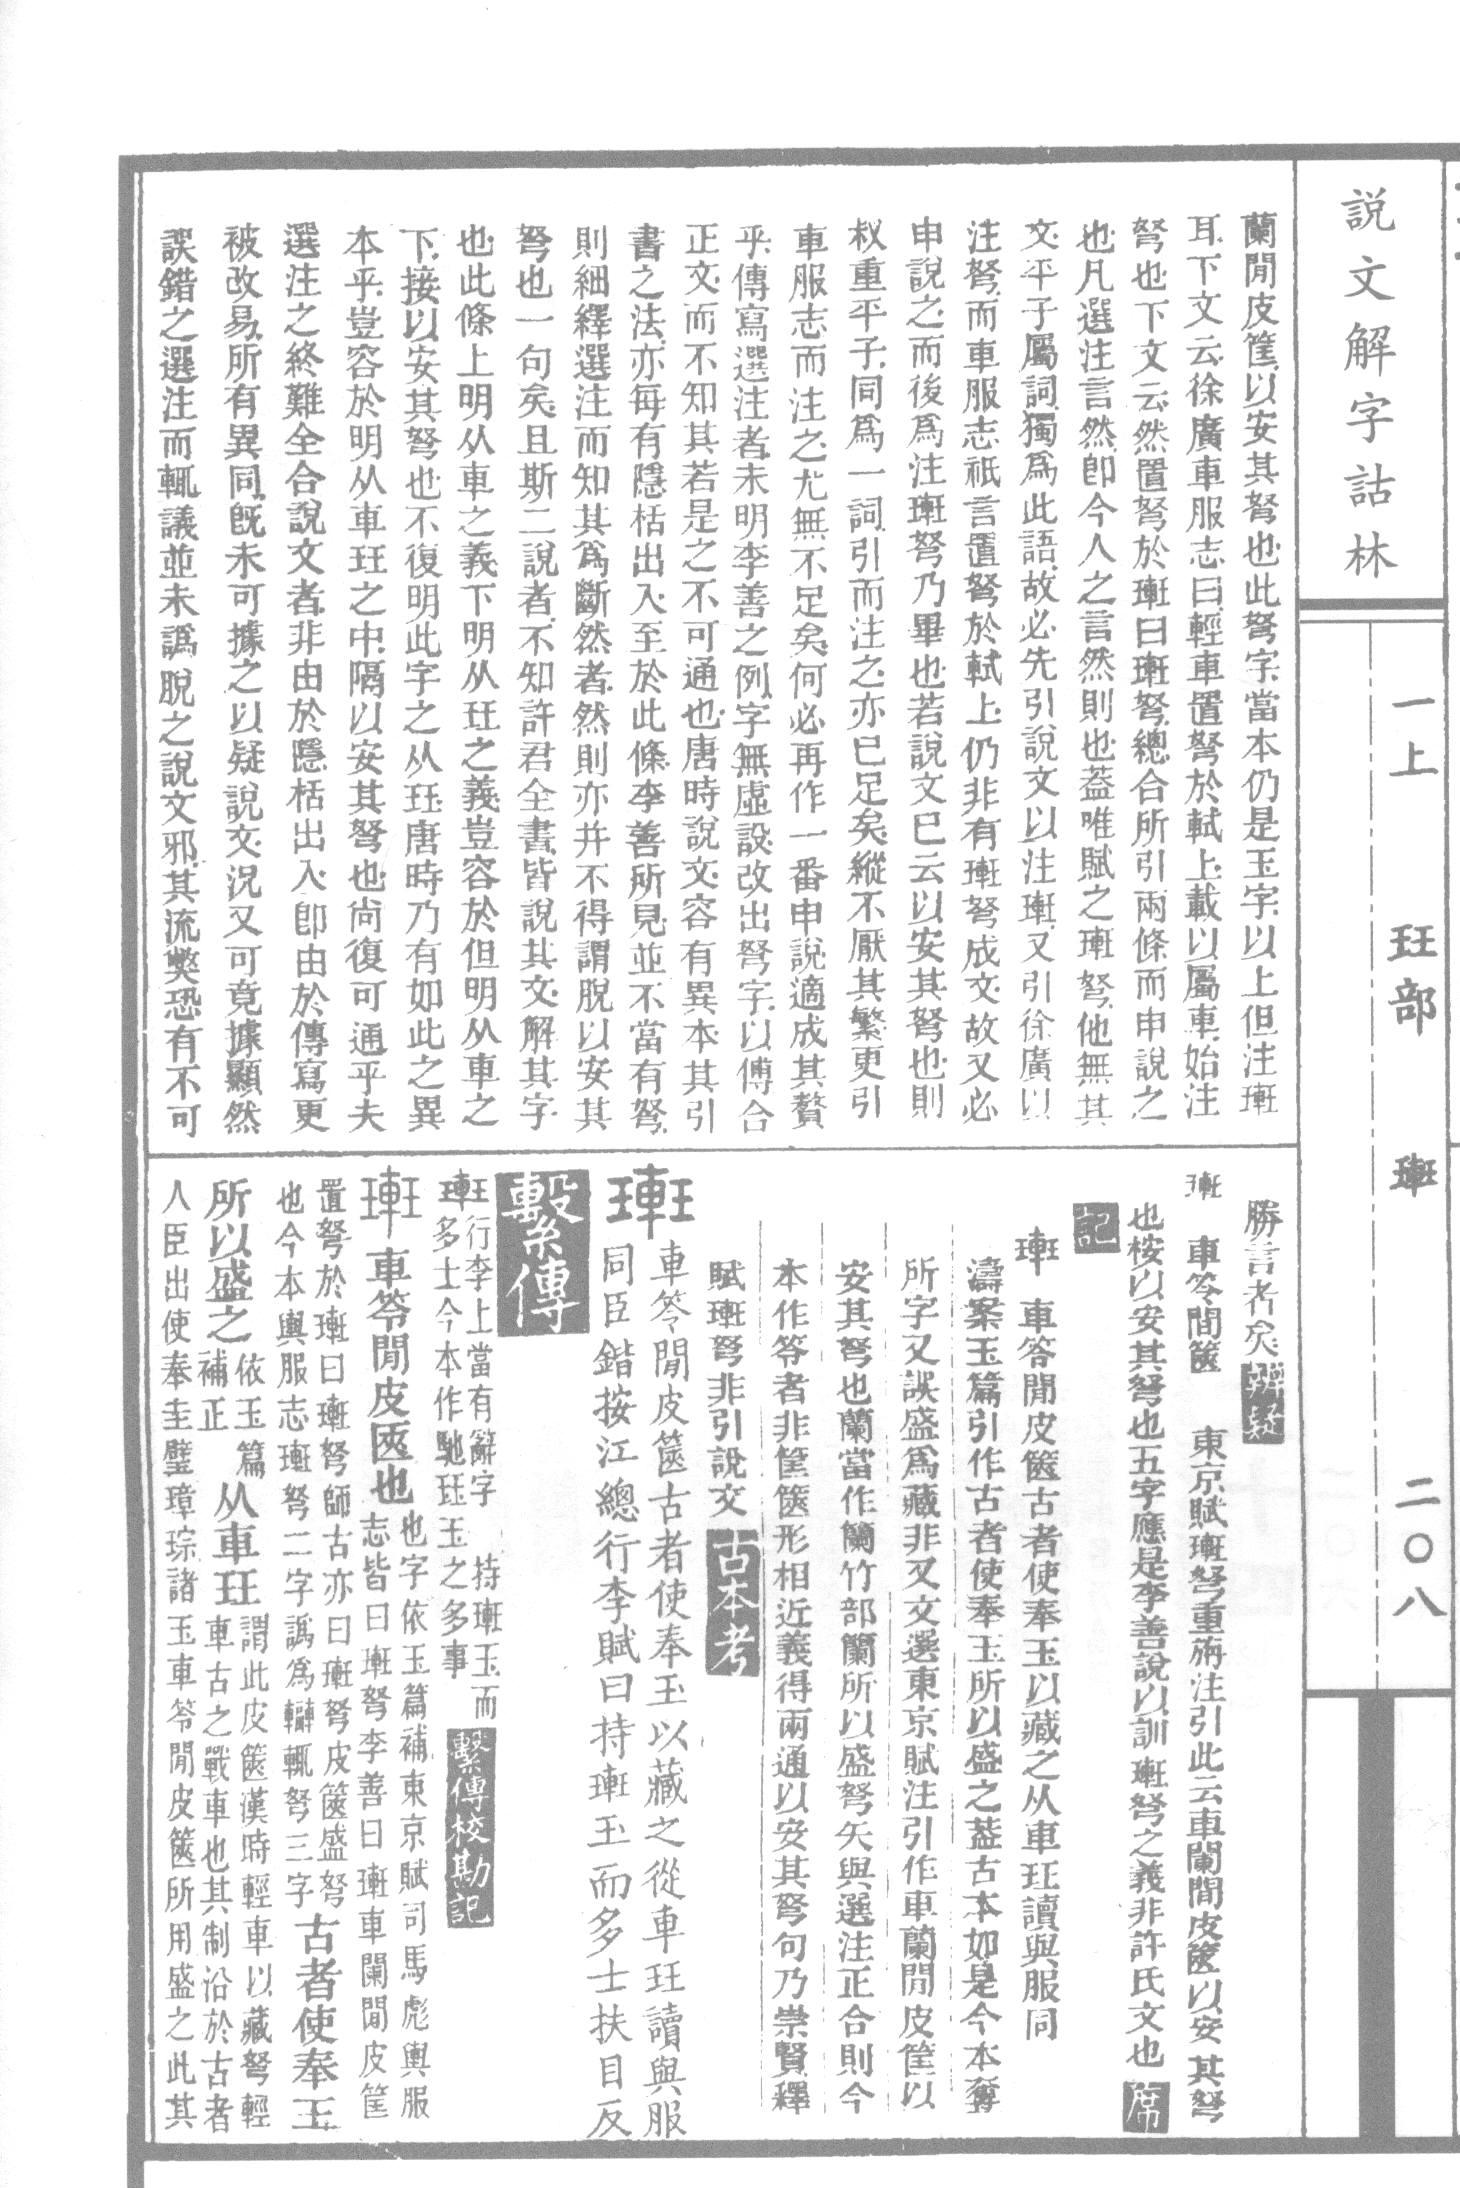 說文解字詁林
一上
玨部
㻌
二〇八
蘭閒皮筐以安其弩也此弩字當本仍是玉字以上但注㻌
耳下文云徐廣車服志曰輕車置弩於軾上載以屬車始注
弩也下文云然置弩於㻌曰㻌弩總合所引兩條而申說之
也凡選注言然卽今人之言然則也葢唯賦之㻌弩他無其
文平子屬詞獨爲此語故必先引說文以注㻌又引徐廣以
注弩而車服志祇言置弩於軾上仍非有㻌弩成文故又必
申說之而後爲注㻌弩乃畢也若說文已云以安其弩也則
叔重平子同爲一詞引而注之亦已足矣縱不厭其繁更引
車服志而注之尤無不足矣何必再作一番申說適成其贅
乎傳寫選注者未明李善之例字無虛設改出弩字以傅合
正文而不知其若是之不可通也唐時說文容有異本其引
書之法亦每有隱栝出入至於此條李善所見並不當有弩
則細繹選注而知其爲斷然者然則亦幷不得謂脫以安其
弩也一句矣且斯二說者不知許君全書皆說其文解其字
也此條上明从車之義下明从玨之義豈容於但明从車之
下接以安其弩也不復明此字之从玨唐時乃有如此之異
本乎豈容於明从車玨之中隔以安其弩也尚復可通乎夫
選注之終難全合說文者非由於隱栝出入卽由於傳寫更
被改易所有異同旣未可據之以疑說文況又可竟據顯然
誤錯之選注而輒議並未譌脫之說文邪其流獘恐有不可
勝言者矣 辨疑
㻌 車笭間篋 東京賦㻌弩重旃注引此云車闌間皮篋以安其弩
也桉以安其弩也五字應是李善說以訓㻌弩之義非許氏文也 席
記
㻌 車笭閒皮篋古者使奉玉以藏之从車玨讀與服同
濤案玉篇引作古者使奉玉所以盛之葢古本如是今本奪
所字又誤盛爲藏非又文選東京賦注引作車蘭閒皮筐以
安其弩也蘭當作籣竹部籣所以盛弩矢與選注正合則今
本作笭者非筐篋形相近義得兩通以安其弩句乃崇賢釋
賦㻌弩非引說文 古本考
㻌 車笭閒皮篋古者使奉玉以藏之從車玨讀與服
同臣鍇按江總行李賦曰持㻌玉而多士扶目反
繫傳
㻌行李上當有辭字 持㻌玉而
多士今本作馳玨玉之多事 繫傳校勘記
㻌 車笭閒皮匧也 也字依玉篇補東京賦司馬彪輿服
志皆曰㻌弩李善曰㻌車闌閒皮筐
置弩於㻌曰㻌弩師古亦曰㻌弩皮篋盛弩
也今本輿服志㻌弩二字譌爲轓輒弩三字 古者使奉玉
所以盛之 依玉篇
補正 从車玨 謂此皮篋漢時輕車以藏弩輕
車古之戰車也其制沿於古者
人臣出使奉圭璧璋琮諸玉車笭閒皮篋所用盛之此其